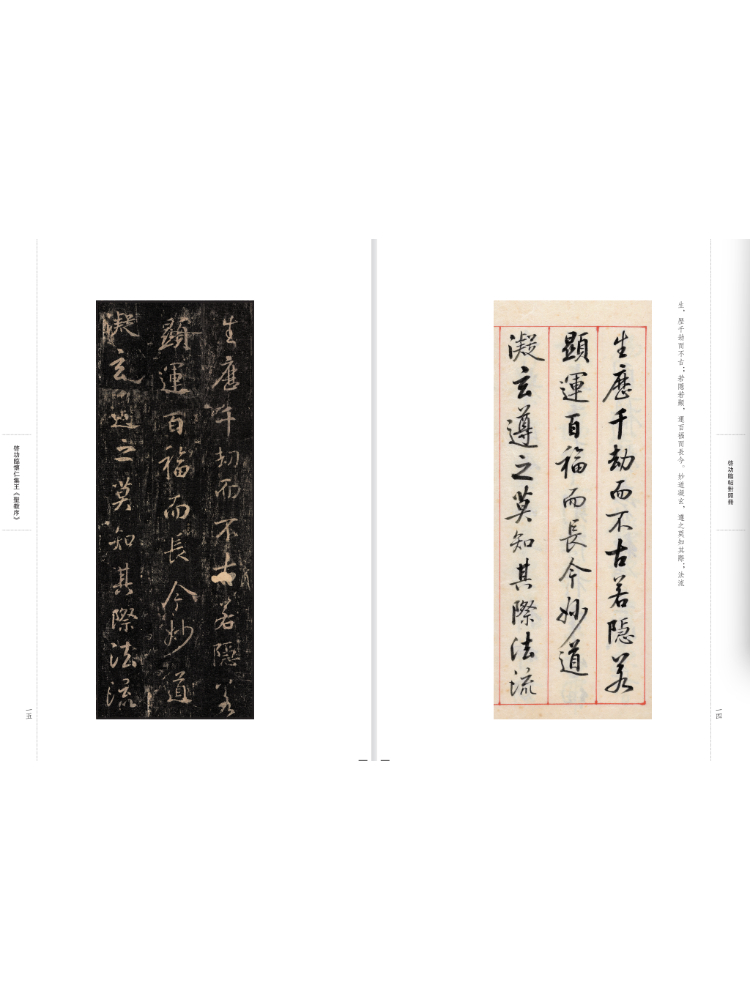 啓功臨帖
一四
生。歷千劫而不古;若隱若顯,運百福而長今。妙道凝玄,遵之莫知其際;法流
生歷千劫而不古若隱若
顯運百福而長今妙道
凝玄遵之莫知其際法流
生歷千劫而不古若隱若
顯運百福而長今妙道
凝玄遵之莫知其際法流
啓功臨懷仁集王《聖教序》
一五